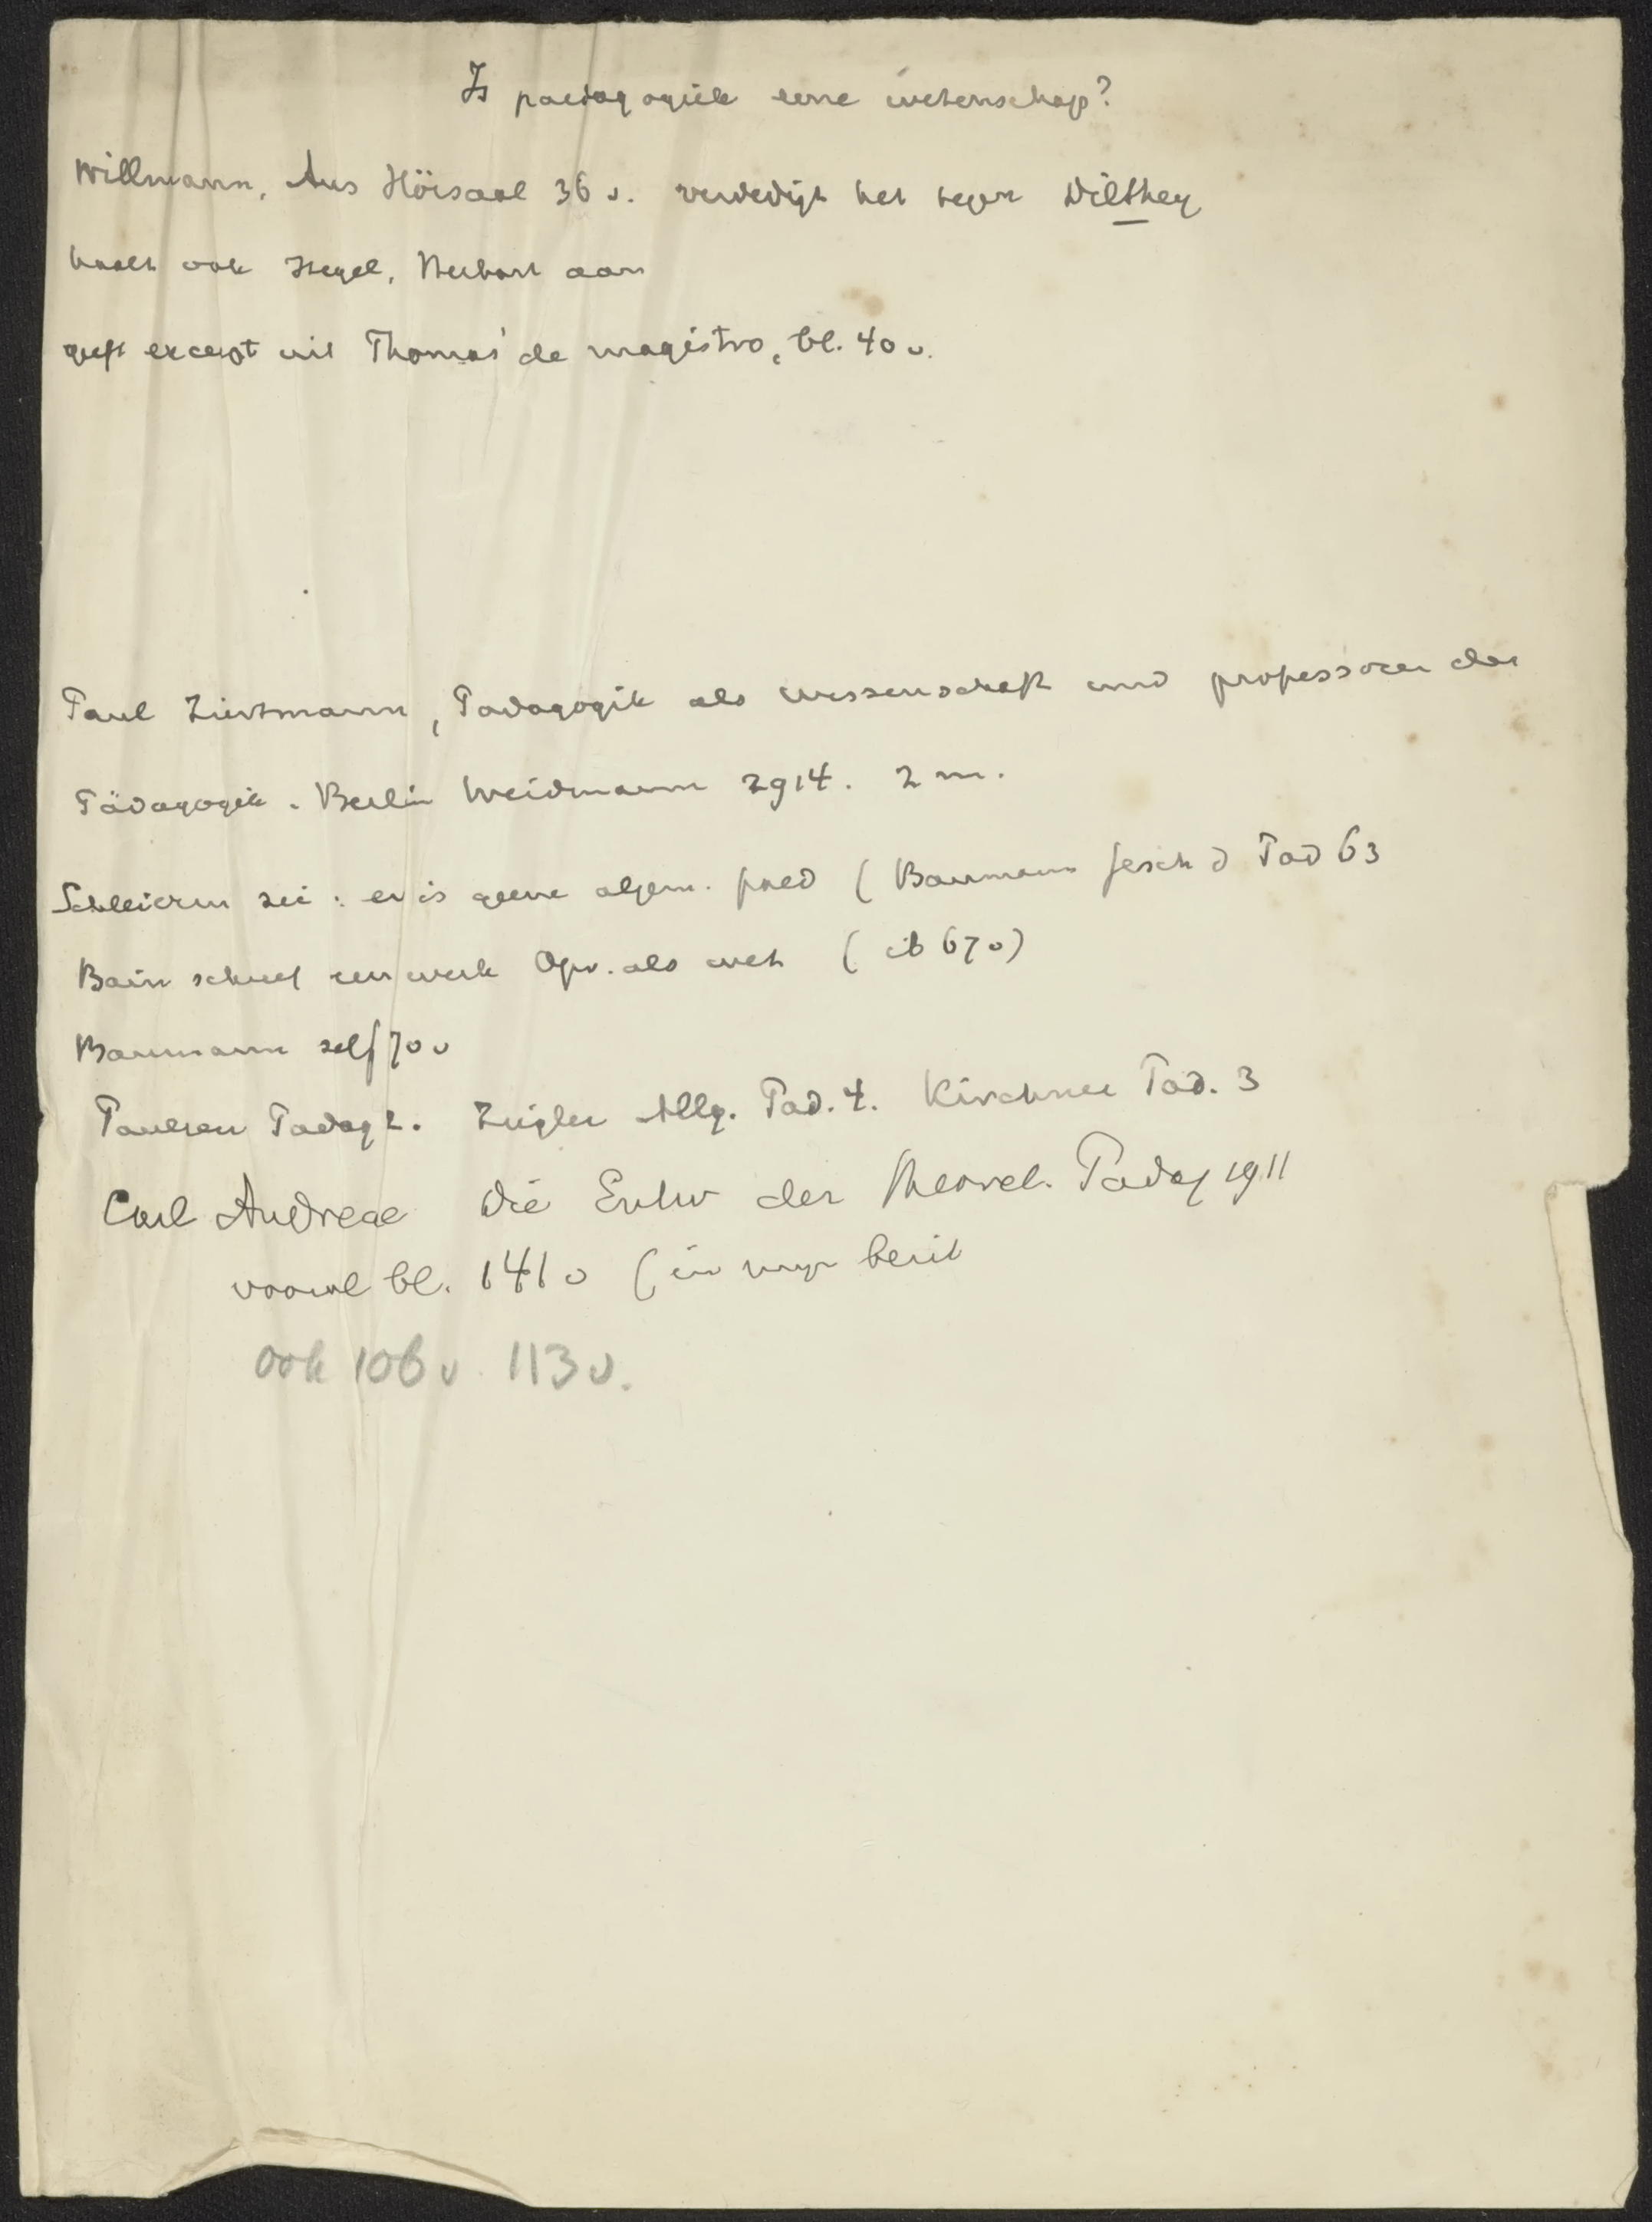 Is paedagogiek eene wetenschap?
Willmann, Aus Hörsaal 36 v. verdedigt het tegen Dilthey
haalt ook Hegel, Herbart aan
geeft excerpt uit Thomas' de magistro, bl. 40 v.
Paul Ziertmann, Padagogik als wissenschaft und professoren der
Pädagogik. Berlin Weidmann 1914. 2 m.
Schleierm zei: er is geene algem. paed (Baumann Gesch d Pad 63
Bain schreef een werk Opv. als wet (ib 67 v)
Baumann zelf 70 v
Paulsen Padag 2. Ziegler Allg. Pad. 4. Kirchner Pad. 3
Carl Andreae Die Entw der theoret. Padag 1911
vooral bl. 141 v (in mijn bezit
ook 106 v 113 v.